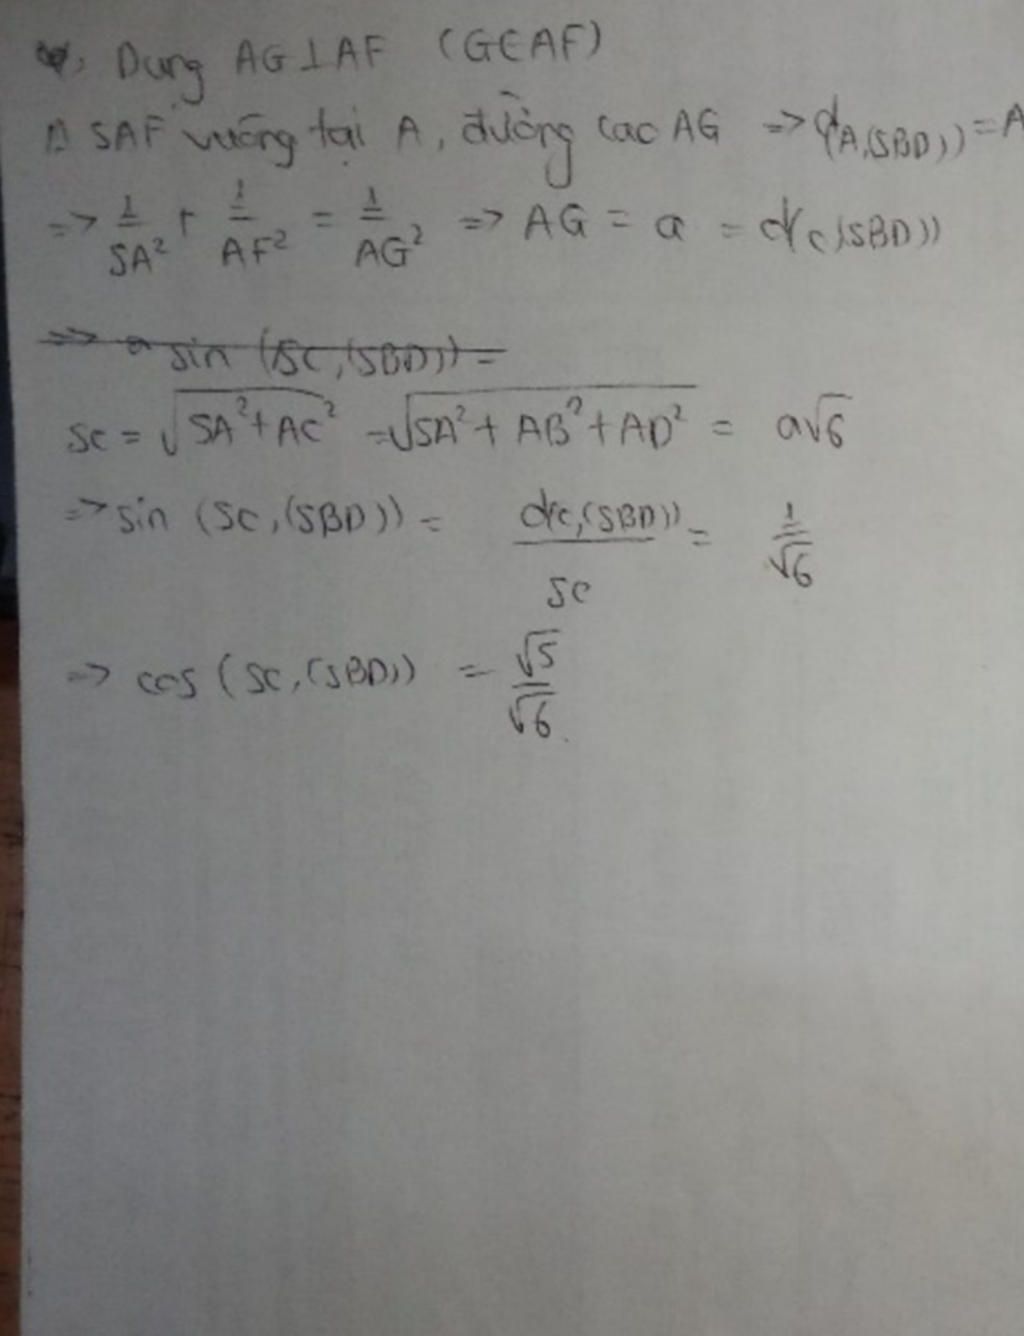 Dựng AG⊥AF (G∈AF)
Δ SAF vuông tại A, đường cao AG => d(A,(SBD)) = A
=> 1/SA² + 1/AF² = 1/AG² => AG = a = d(C,(SBD))
=> sin (SC,(SBD)) =
SC = √(SA²+AC²) = √(SA²+AB²+AD²) = a√6
=> sin (SC,(SBD)) = d(C,(SBD))/SC = 1/√6
=> cos (SC,(SBD)) = √5/√6.